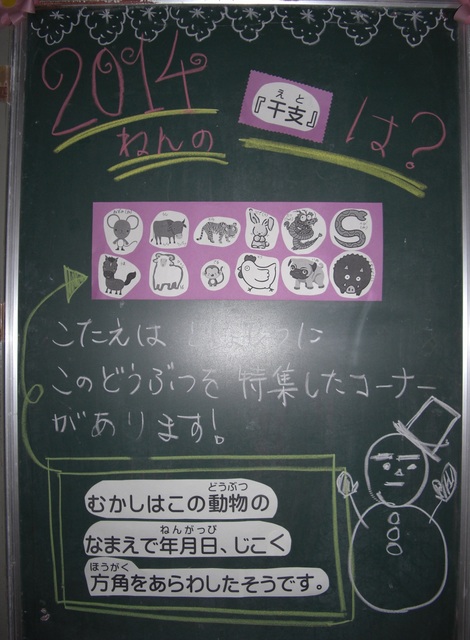 2014
ねんの
『干支』は?
えと
こたえは
に
このどうぶつを特集したコーナー
があります!
どうぶつ
むかしはこの動物の
ねんがっぴ
なまえで年月日、じこく
ほうがく
方角をあらわしたそうです。